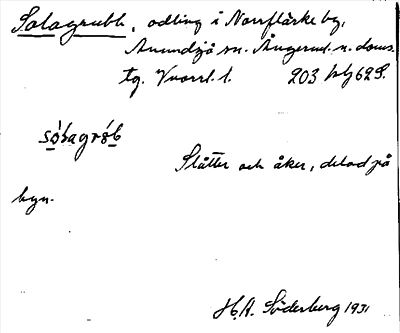 Solagrubb, odling i Norrflärke by,
Anundsjö sn. Ångerml. n. doms.
tg. Vnorrl. l. 203 hbg 629.
sólagrób
Slåtter och åker, delad på
byn.
H.A. Söderberg 1931